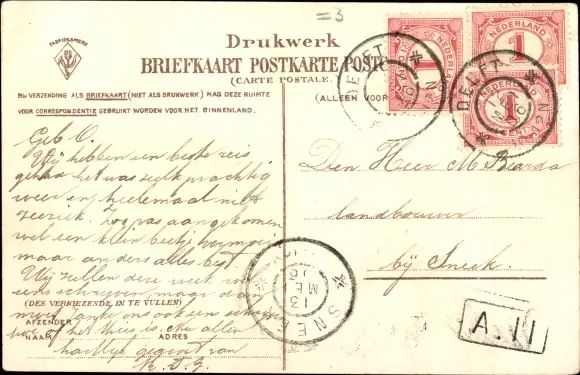 =3
FABRIEKSMERK
Drukwerk
BRIEFKAART POSTKARTE POST
(CARTE POSTALE.
BIJ VERZENDING ALS BRIEFKAART (NIET ALS DRUKWERK) MAG DEZE RUIMTE
VOOR CORRESPONDENTIE GEBRUIKT WORDEN VOOR HET BINNENLAND.
(ALLEEN VOOR
NEDERLAND
1
CENT
DELFT
DELFT
Geb O.
Wij hebben een beste reis
gehad het was zulk prachtig
weer en heelemaal niet
zeeziek. Zoo pas aangekomen
wel een klein beetje
maar anders alles best.
Wij zullen deze week
eens schrijven maar dan
moet Janke ons ook eens schrijven
of het thuis is. aan allen
hartlijk gegroet van
K. D. J.
(DES VERKIEZENDE IN TE VULLEN)
AFZENDER
NAAM
ADRES
Den Heer M Bearda
landbouwer
bij Sneek.
SNEEK
13
ME
A.11